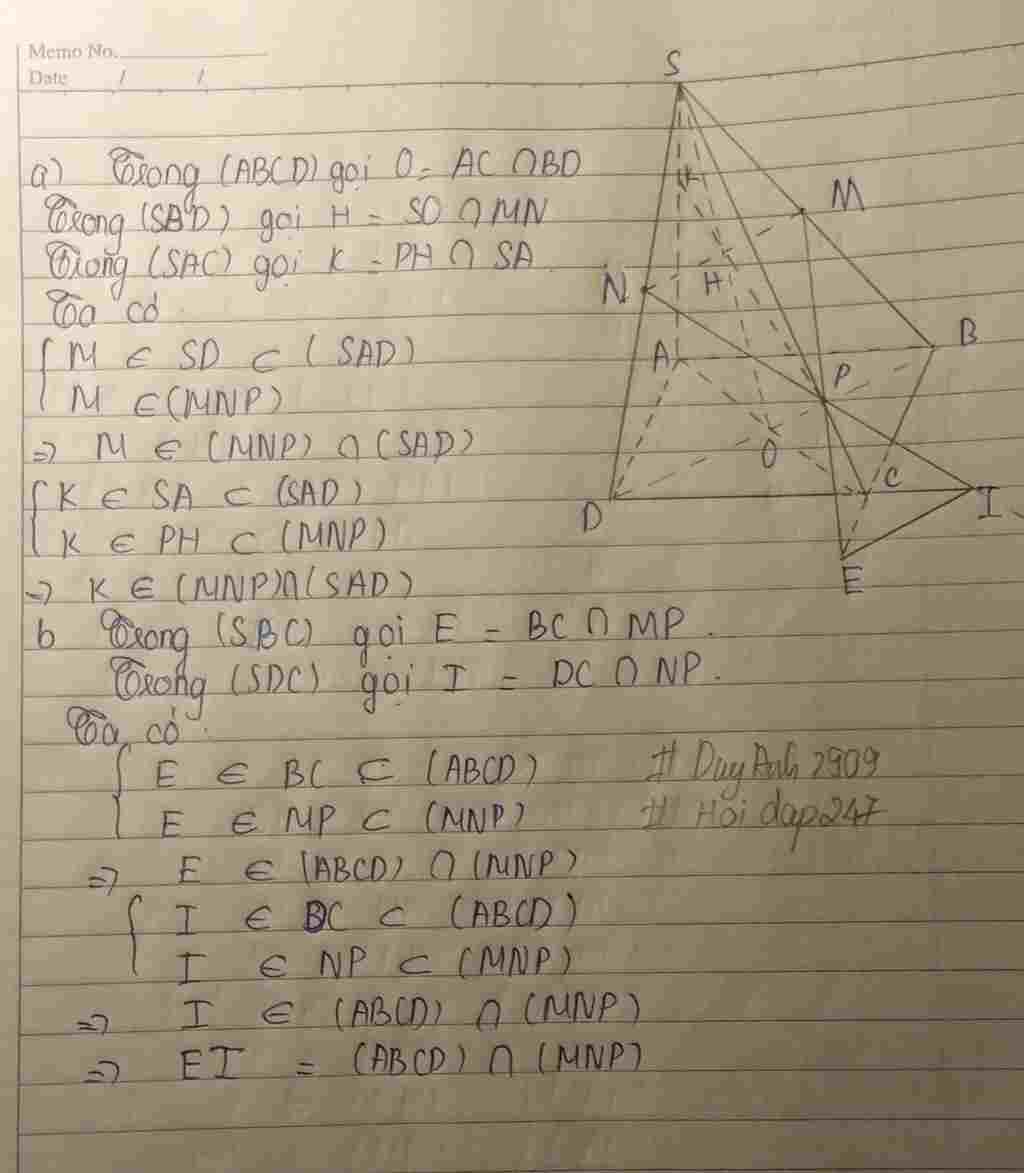 Memo No.
Date / /
a) Trong (ABCD) gọi O = AC ∩ BD
Trong (SBD) gọi H = SO ∩ MN
Trong (SAC) gọi K = PH ∩ SA
Ta có
{ M ∈ SD ⊂ (SAD)
M ∈ (MNP)
=> M ∈ (MNP) ∩ (SAD)
{ K ∈ SA ⊂ (SAD)
K ∈ PH ⊂ (MNP)
=> K ∈ (MNP) ∩ (SAD)
b Trong (SBC) gọi E = BC ∩ MP.
Trong (SDC) gọi I = DC ∩ NP.
Ta có:
{ E ∈ BC ⊂ (ABCD)
E ∈ MP ⊂ (MNP)
=> E ∈ (ABCD) ∩ (MNP)
{ I ∈ DC ⊂ (ABCD)
I ∈ NP ⊂ (MNP)
=> I ∈ (ABCD) ∩ (MNP)
=> EI = (ABCD) ∩ (MNP)
# DuyAnh2909
# Hoidap247
S
K
M
N
H
A
B
P
O
D
C
I
E